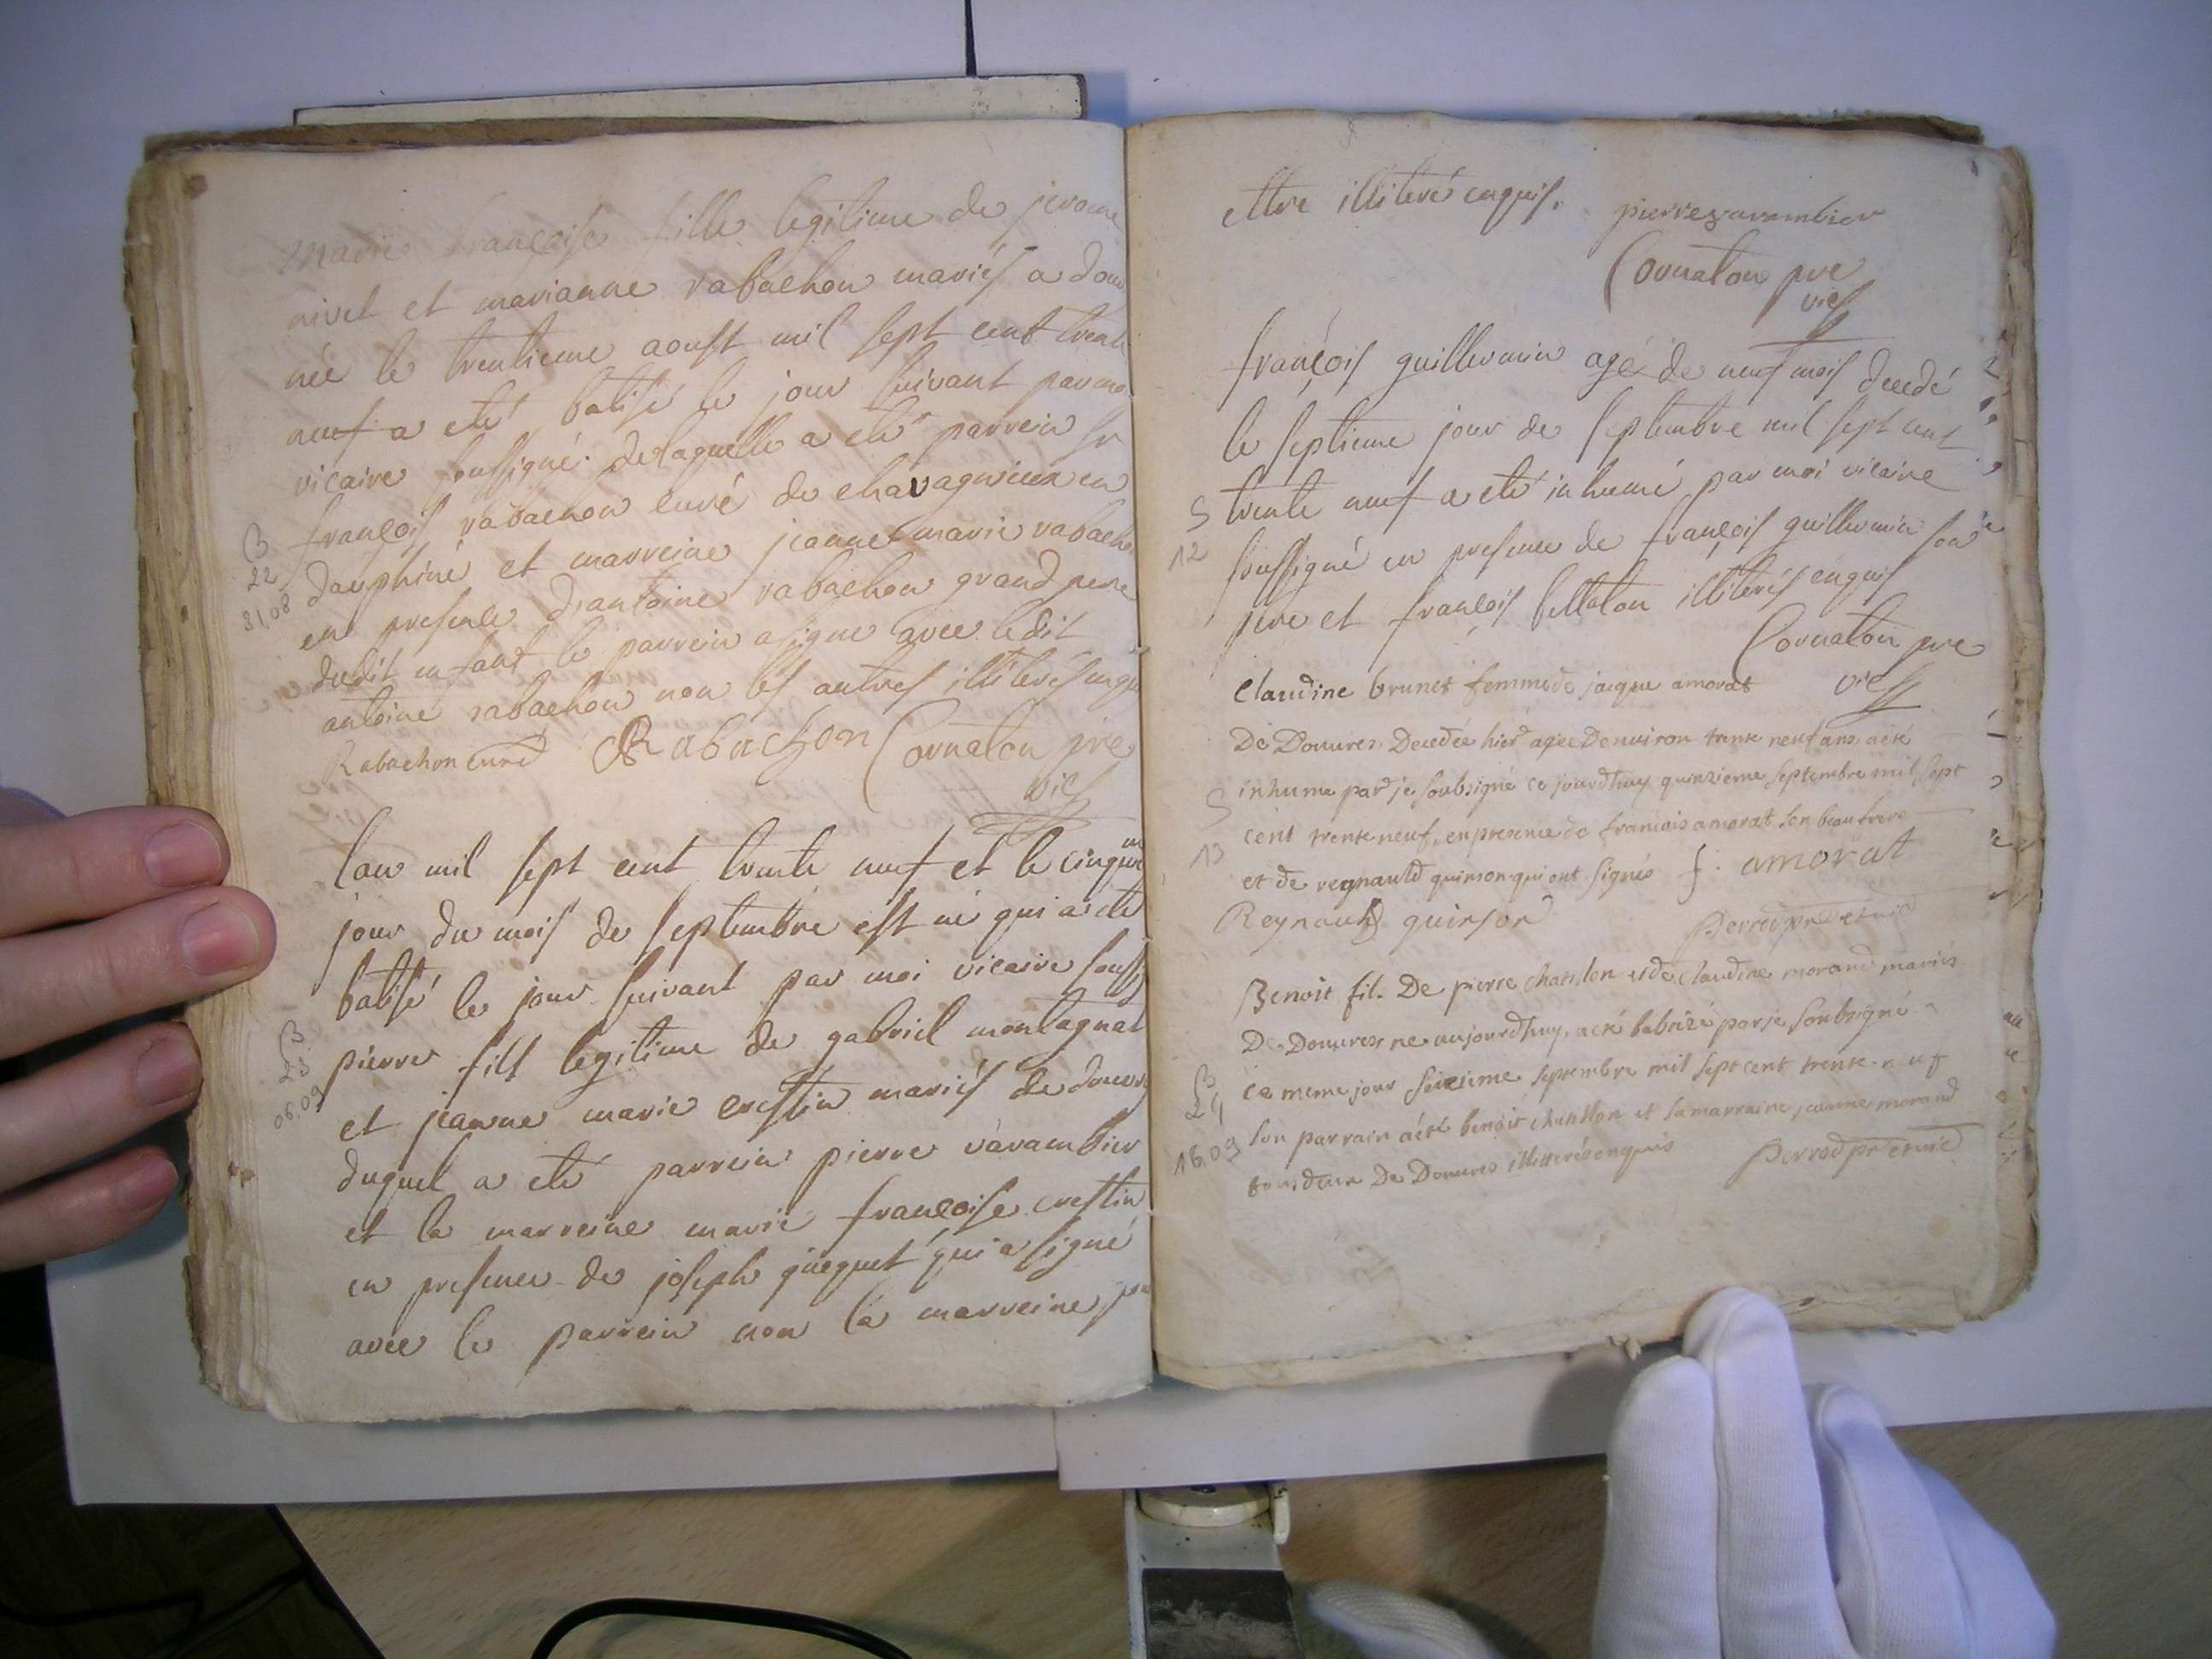 Marie françoise fille legitime de jerome
nivet et marianne rabachon mariés a douv
née le trentieme aoust mil sept cent trente
neuf a eté batisé le jour suivant par moi
vicaire soussigné. de laquelle a eté parrein sr
françois rabachon curé de chavagnieux en
dauphiné et marreine jeanne marie rabacho
en presence d'antoine rabachon grand pere
dudit enfant le parrein a signé avec ledit
antoine rabachon non les autres illiterés enqu
B
22
31.08
Rabachon curé Rabachon Cornaton pre
vic
lan mil sept cent trente neuf et le cinquie
jour du mois de septembre est né qui a eté
batisé le jour suivant par moi vicaire souss
pierre fils legitime de gabriel montagnat
et jeanne marie crestin mariés de douvre
duquel a eté parrein pierre varambier
et la marreine marie françoise crestin
en presence de joseph juequet qui a signé
avec le parrein non la marreine pou
B
23
06.09
estre illiteré enquis. pierre varambier
Cornaton pre
vic
françois guillermin agé de neuf mois decedé
le septieme jour de septembre mil sept cent
trente neuf a eté inhumé par moi vicaire
soussigné en presence de françois guillermin son
pere et françois billaton illiterés enquis
S
12
Cornaton pre
vic
Claudine brunet femme de jacque amorat
De Douvres, Decedée hier agée Denviron trente neuf ans, a eté
inhume par je soubsigné ce jourdhuy quinzieme septembre mil sept
cent trente neuf, en presence de francois amorat son beau frere
et de regnauld quinson qui ont signés f. amorat
S
13
Reynaud quinson Perrod pre et vic
Benoit fil. De pierre chanlon et de Claudine morand mariés
De Douvres ne aujourdhuy, a eté babtizé par je soubsigné
ce meme jour seizieme septembre mil sept cent trente neuf
son parrain a eté benoit chanlon et sa marraine jeanne morand
tous deux De Douvres illiterés enquis Perrod pre et vic
B
24
16.09